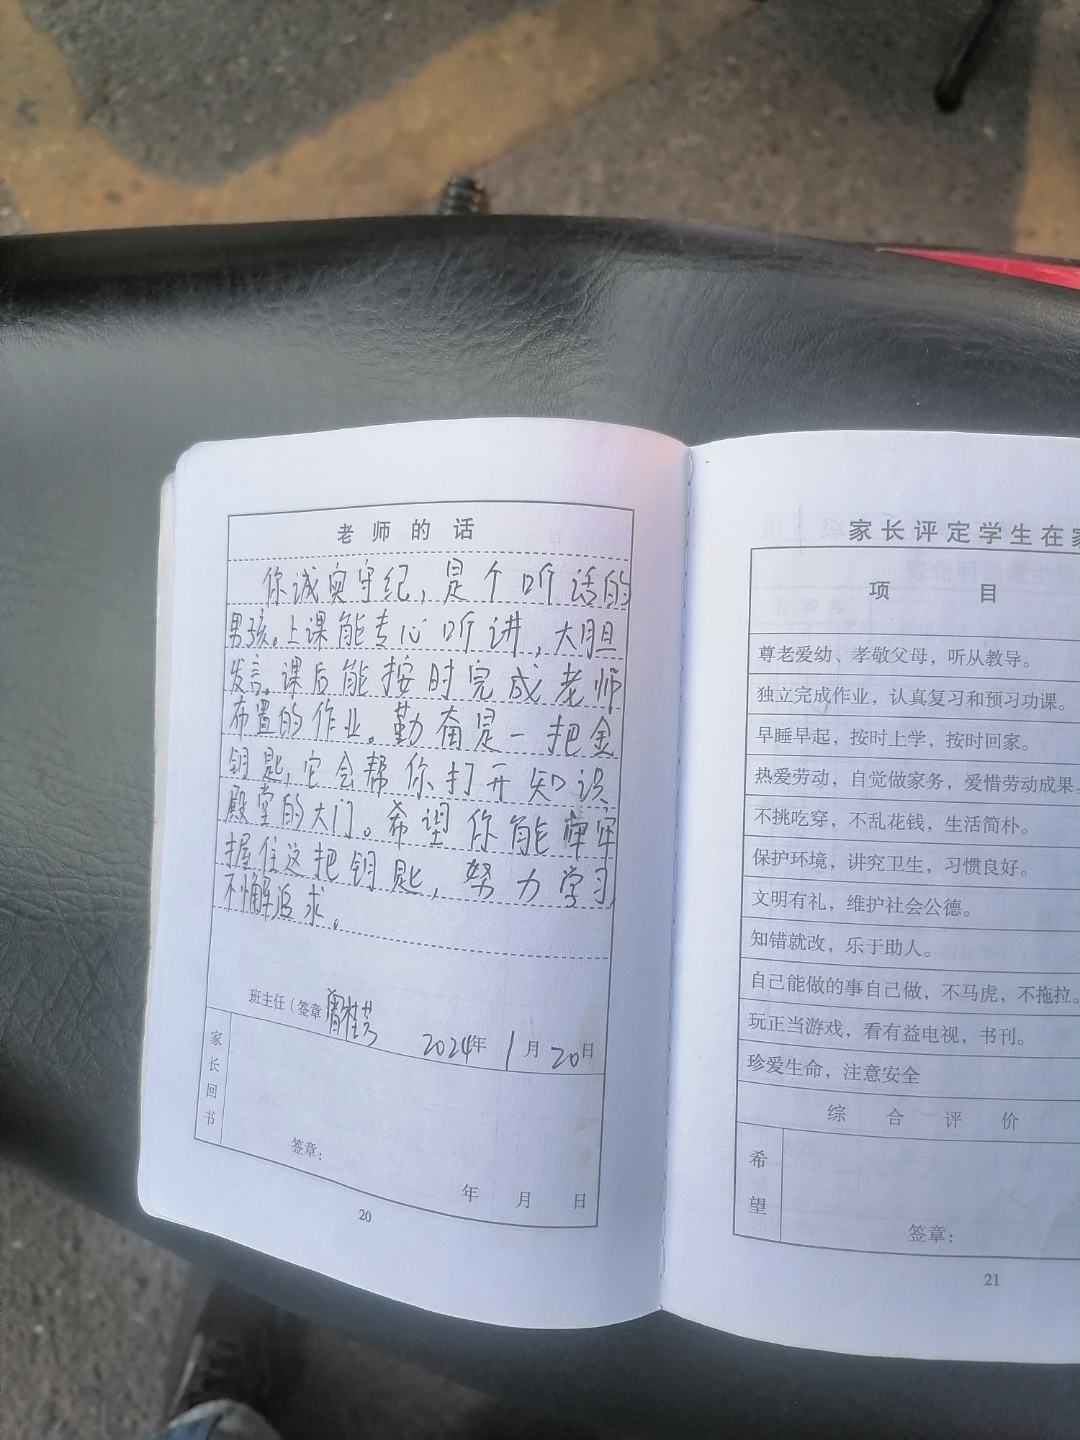 老师的话
你诚实守纪，是个听话的
男孩。上课能专心听讲，大胆
发言。课后能按时完成老师
布置的作业。勤奋是一把金
钥匙，它会帮你打开知识
殿堂的大门。希望你能牢牢
握住这把钥匙，努力学习
不懈追求。
班主任（签章
2024年 1月 20日
家长回书
签章：
年 月 日
20
家长评定学生在家
项 目
尊老爱幼、孝敬父母，听从教导。
独立完成作业，认真复习和预习功课。
早睡早起，按时上学，按时回家。
热爱劳动，自觉做家务，爱惜劳动成果。
不挑吃穿，不乱花钱，生活简朴。
保护环境，讲究卫生，习惯良好。
文明有礼，维护社会公德。
知错就改，乐于助人。
自己能做的事自己做，不马虎，不拖拉。
玩正当游戏，看有益电视，书刊。
珍爱生命，注意安全
综合评价
希望
签章：
21